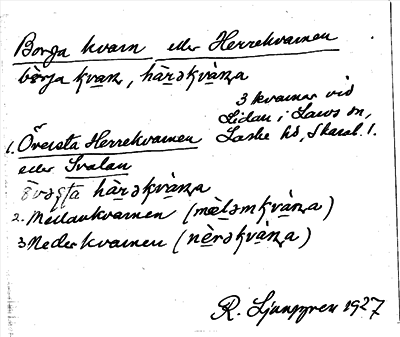 Borga kvarn eller Herrekvarnen
bòrja kvaɳ, hàrəkvàɳa
3 kvarnar vid
Lidan i Larvs sn,
Laske hd, Skarab. l.
1. Översta Herrekvarnen
eller Svalan
hàrəkvàɳa
2. Mellankvarnen (mœ̀ləmkvàɳa)
3 Nederkvarnen (nèrəkvàɳa)
R. Ljunggren 1927